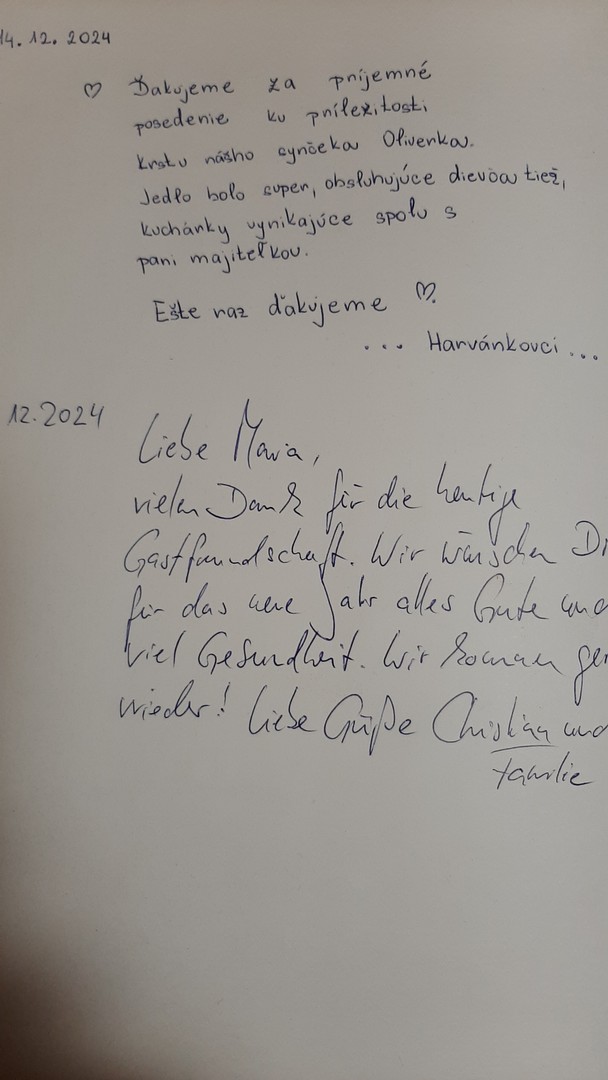 14. 12. 2024
♡ Ďakujeme za príjemné
posedenie ku príležitosti
krstu nášho synčeka Oliverka.
Jedlo bolo super, obsluhujúce dievča tiež,
kuchárky vynikajúce spolu s
pani majiteľkou.
Ešte raz ďakujeme ♡.
... Harvánkovci ...
12.2024
Liebe Maria,
vielen Dank für die heutige
Gastfreundschaft. Wir wünschen Di
für das neue Jahr alles Gute und
viel Gesundheit. Wir kommen ger
wieder! Liebe Grüße Christian und
Familie